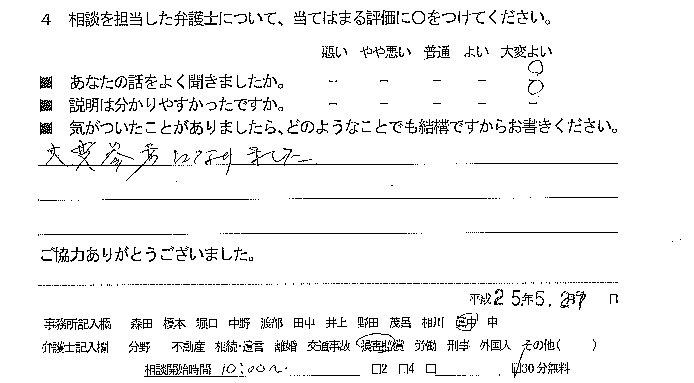 4 相談を担当した弁護士について、当てはまる評価に○をつけてください。
悪い やや悪い 普通 よい 大変よい
あなたの話をよく聞きましたか。 － － － － ○
説明は分かりやすかったですか。 － － － － ○
気がついたことがありましたら、どのようなことでも結構ですからお書きください。
大変参考になりました
ご協力ありがとうございました。
平成25年5.29 日
事務所記入欄 森田 榎本 堀口 中野 渡部 田中 井上 野田 茂呂 相川 申
弁護士記入欄 分野 不動産 相続・遺言 離婚 交通事故 損害賠償 労働 刑事 外国人 その他( )
相談開始時間 10:00~ □2 □4 □ 30分無料